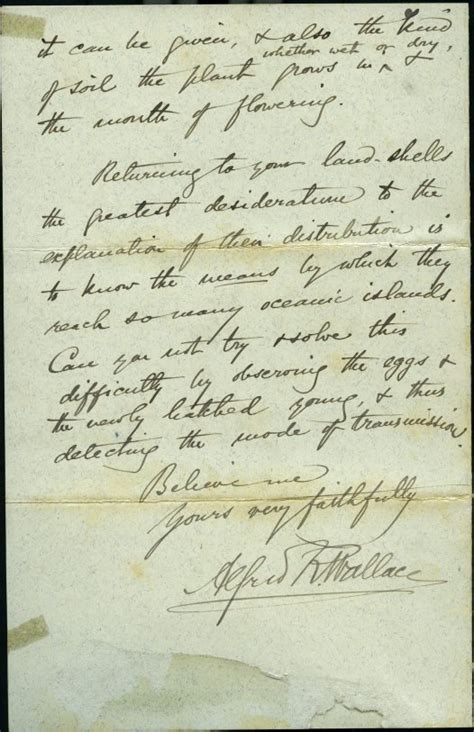 it can be given, & also the kind
of soil the plant grows in whether wet or dry,
the month of flowering.
Returning to your land-shells
the greatest desideratum to the
explanation of their distribution is
to know the means by which they
reach so many oceanic islands.
Can you not try & solve this
difficulty by observing the eggs &
the newly hatched young, & thus
detecting the mode of transmission.
Believe me
Yours very faithfully
Alfred R. Wallace